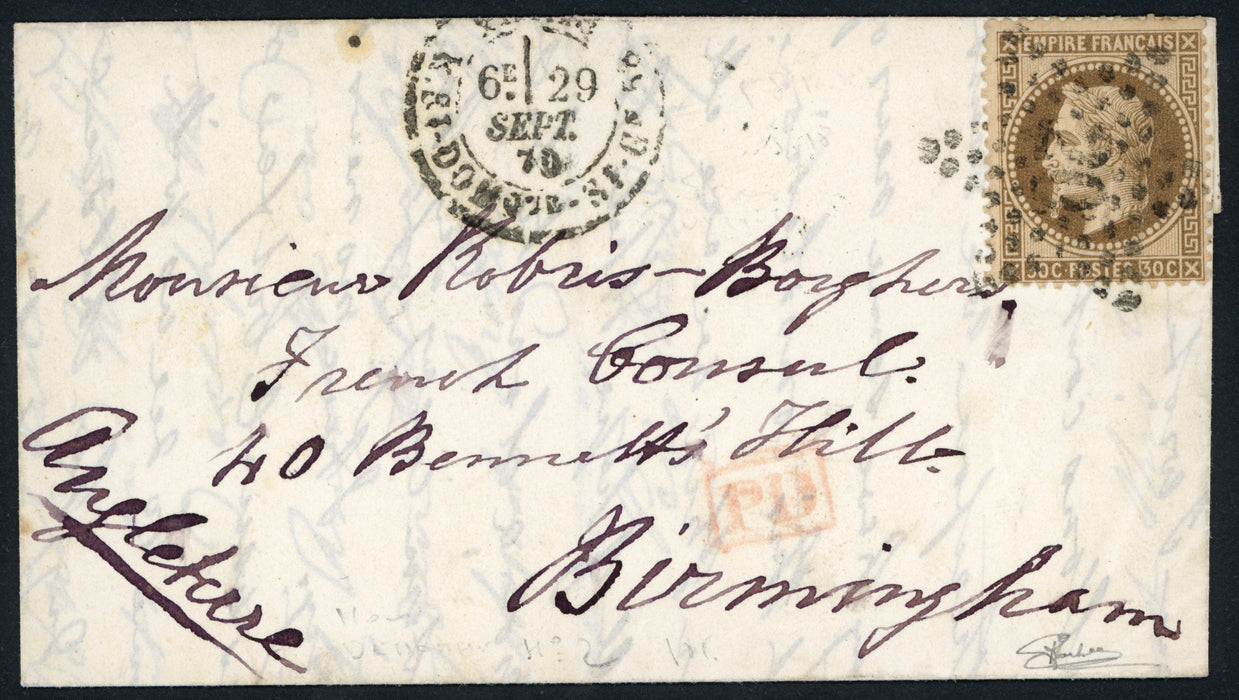 6E 29
SEPT.
70
EMPIRE FRANCAIS
30C POSTES 30C
Monsieur Robris-Borghers,
French Consul.
40 Bennett's Hill.
PD
Birmingham
Angleterre